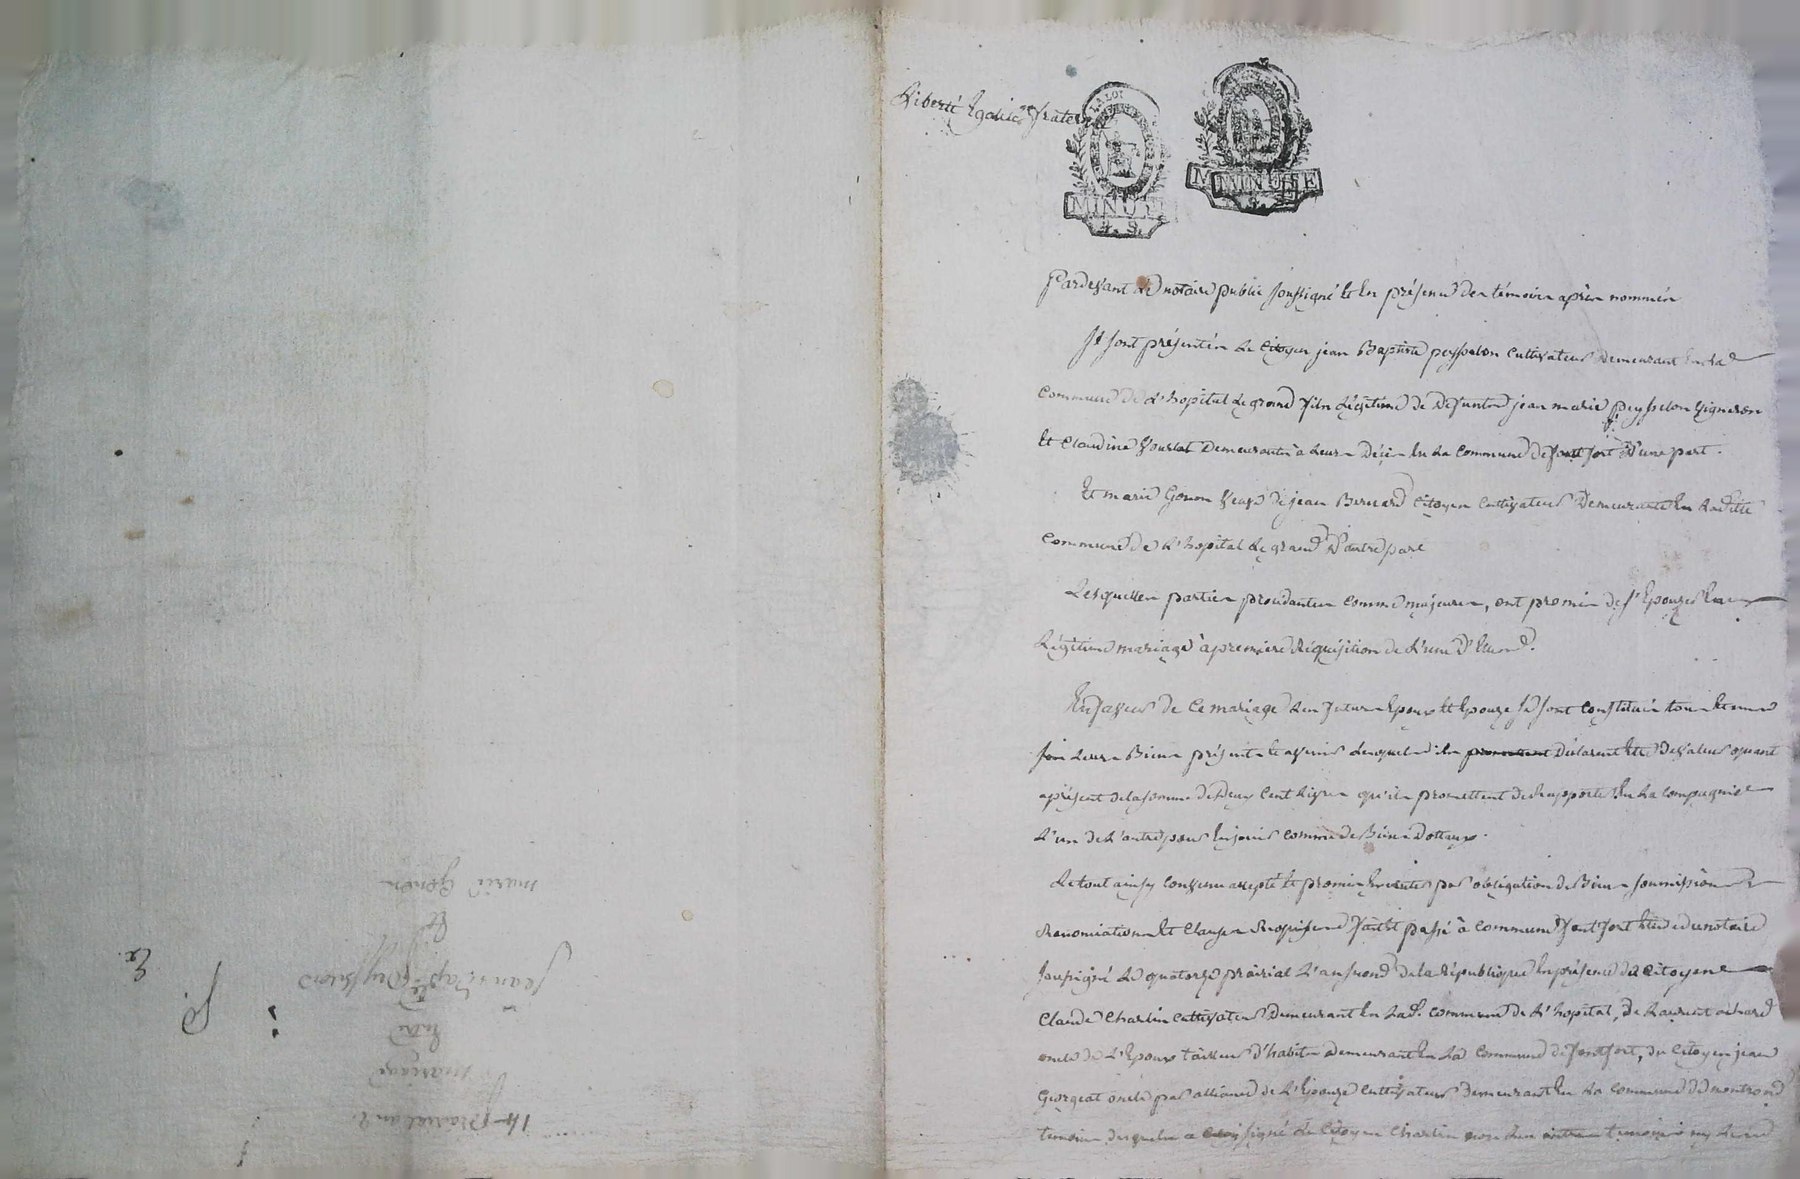 Liberté Egalité fraternité
LA LOI
MINUTE
4. S.
MINUTE
Pardevant le notaire public soussigné et en présence des témoins après nommés
Se sont présentés le Citoyen jean Baptiste peysselon cultivateur demeurant en la
commune de L'hopital le grand fils légitime de deffunts jean marie peysselon vigneron
et Claudine demeurants à leurs décès en la commune de fontfort d'une part.
Et marie Gonon veuve de jean Bernard citoyen cultivateur demeurante en laditte
commune de L'hopital le grand d'autre part
Lesquelles parties procédantes comme majeures, ont promis de s'épouzer en
légitime mariage à première réquisition de l'une d'elles.
En faveur de ce mariage les futurs époux et épouze se sont constitués tous et uns
leurs Biens présents et avenir lesquels ils déclarent être de valeur quant
aprésent de la somme de deux cent livres qu'ils promettent de se apporter en la compagnie
l'un de l'autre pour en jouir comme de Biens dottaux.
Le tout ainsy convenu accepté et promis exécuter par obligation de Biens soumissions
Renonciations et clauses Requises fait et passé à commune fontfort étude du notaire
soussigné le quatorze prairial l'an second de la république en présence des citoyens
Claude Charlin cultivateur demeurant en lad. commune de L'hopital, de Laurent
oncle de l'époux tailleur d'habits demeurant en la commune de fontfort, du citoyen jean
Georgeat oncle par alliance de l'épouze cultivateur demeurant en la commune de montrond
témoins desquels a signé le citoyen Charlin non les témoins ny
14 prairial an 2.
mariage
Entre
jean Bapte Peysselon
Et
marie Gonon